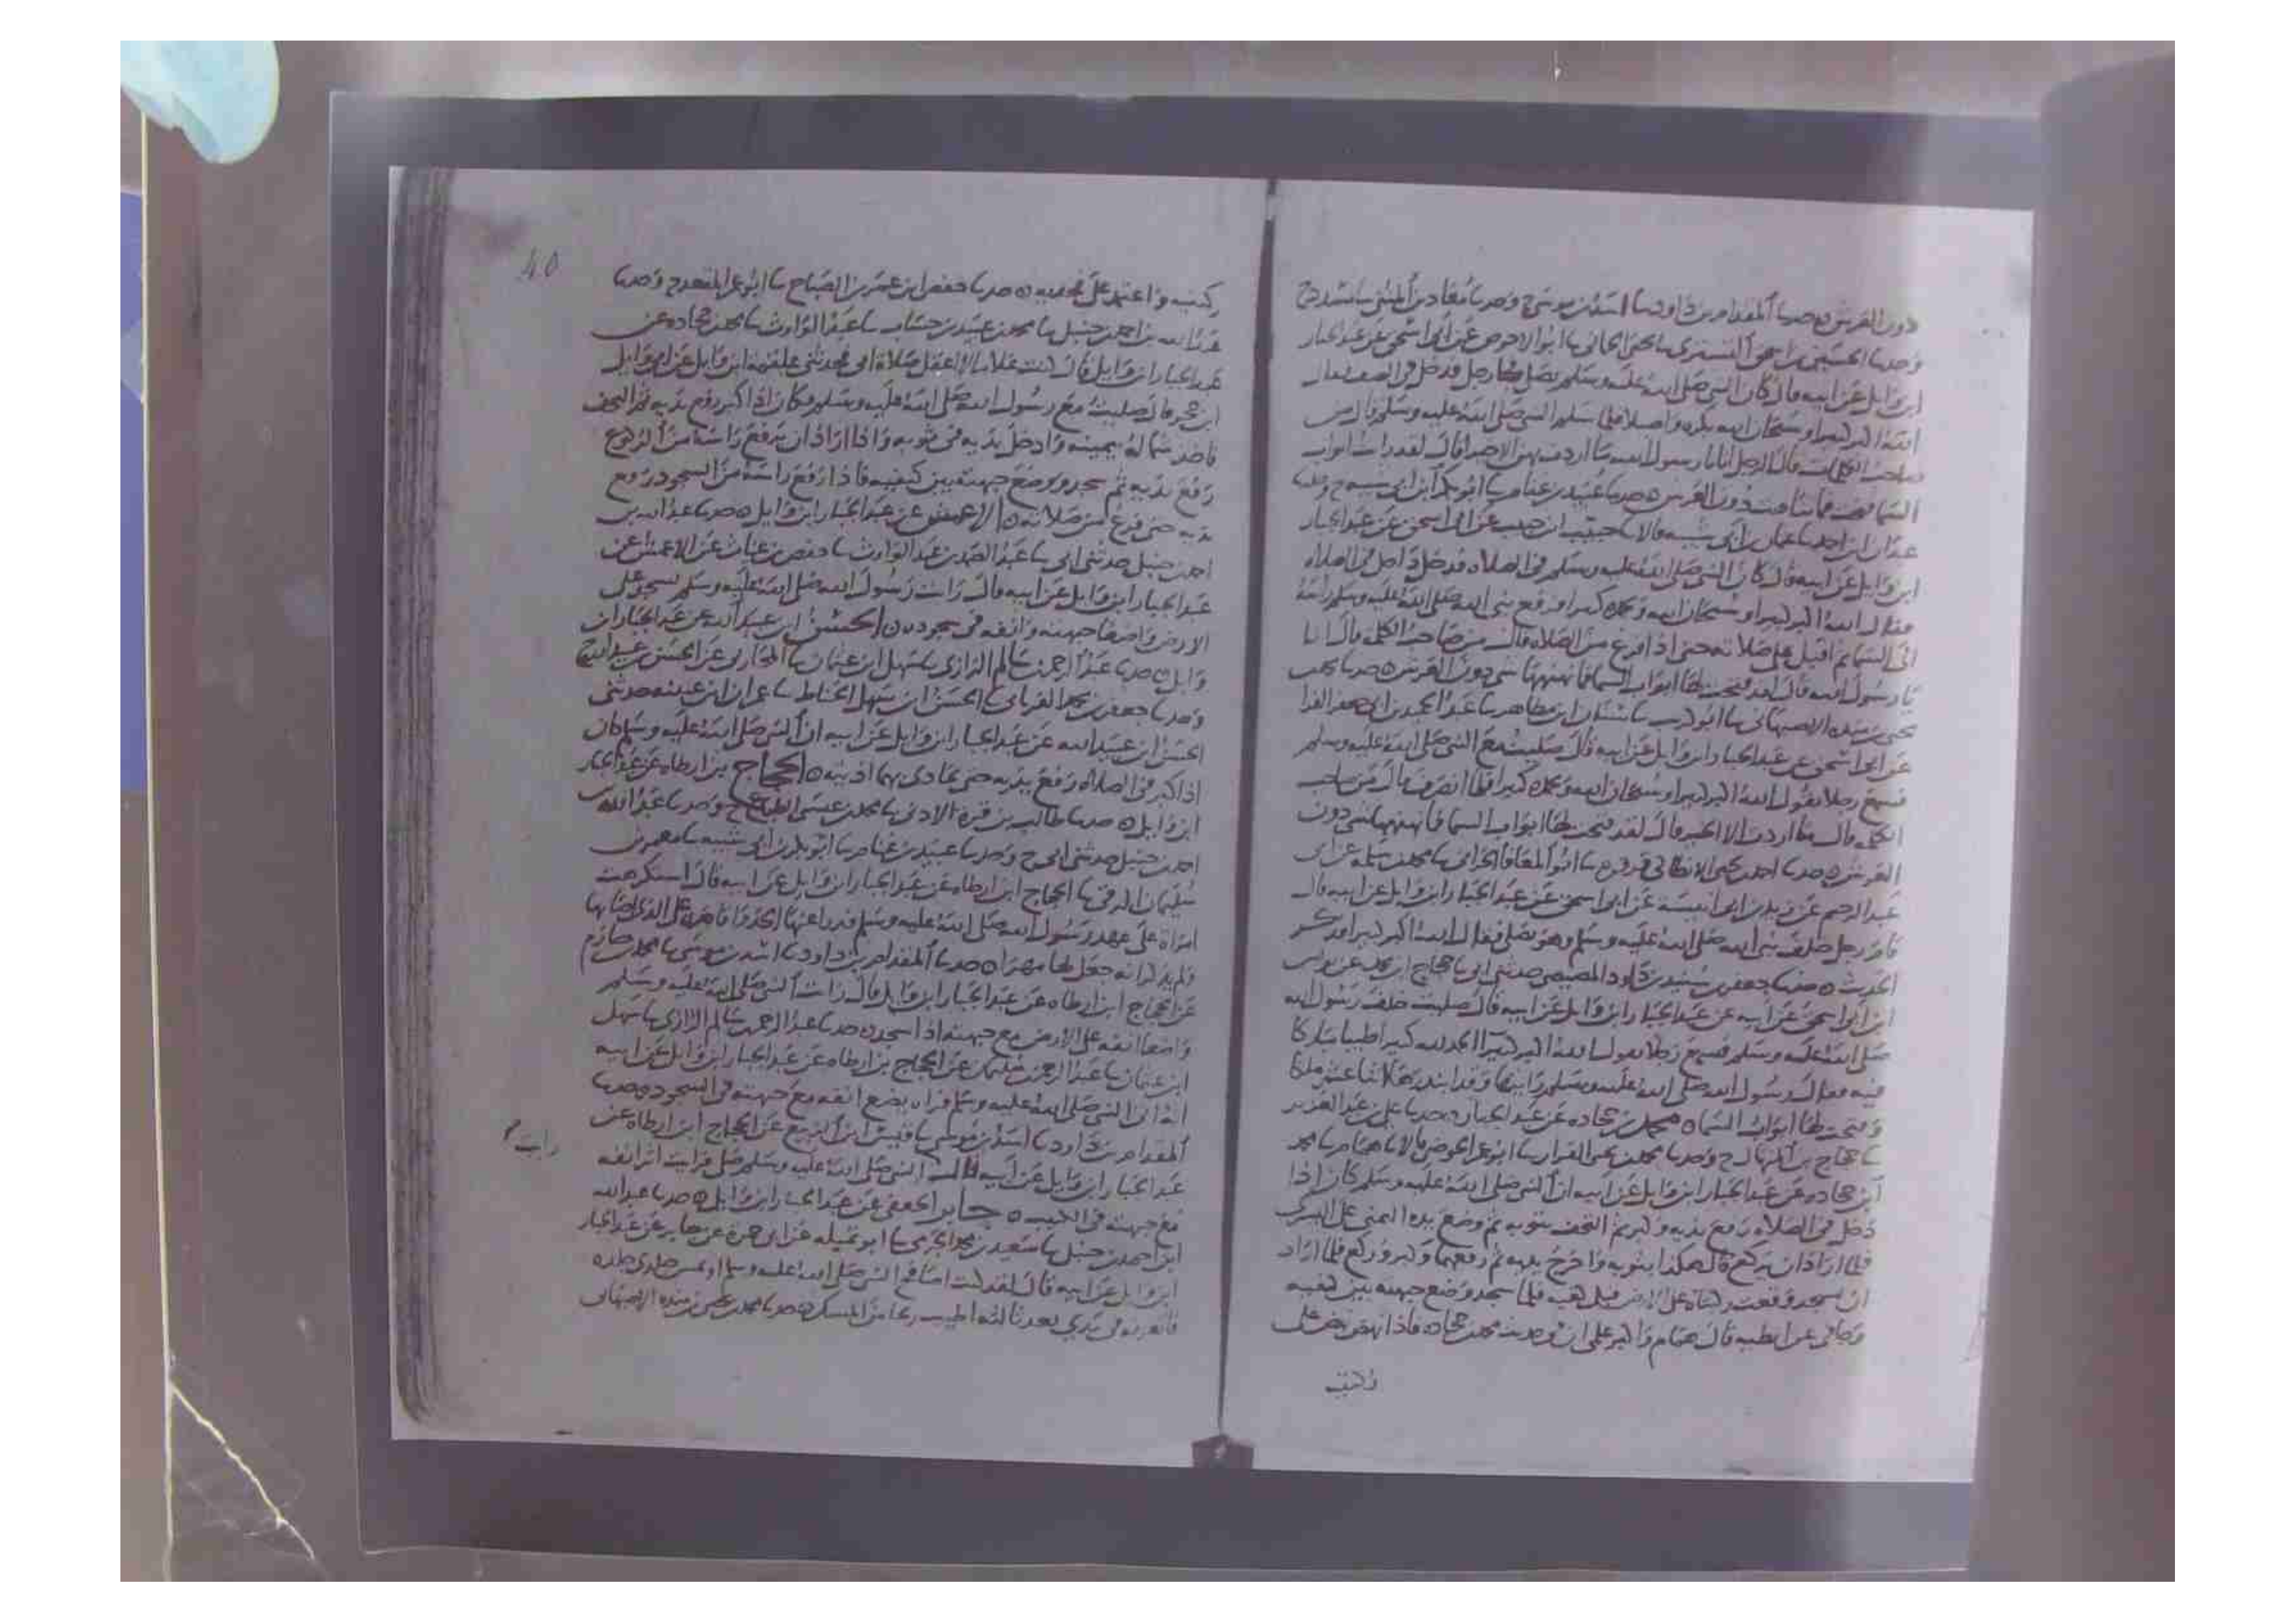 دون العرش حدثنا المقدام بن داود ثنا اسد بن موسى ح وحدثنا معاذ بن المثنى ثنا مسدد ح
وحدثنا الحسين بن اسحق التستري ثنا يحيى الحماني ثنا ابو الاحوص عن ابي اسحق عن عبد الجبار
ابن وايل عن ابيه قال كان النبي صلى الله عليه وسلم يصلي فجا رجل فدخل في الصف فقال
الله اكبر كبيرا وسبحان الله بكرة واصيلا فلما سلم النبي صلى الله عليه وسلم قال من
صاحب الكلمات قال الرجل انا يا رسول الله ما اردت بهن الا خيرا قال لقد رايت ابواب
السما فتحت فما تناهت دون العرش حدثنا عبيد بن غنام ثنا ابو بكر ابن ابي شيبه ح وحدثنا
عبدان ابن احمد ثنا عثمان بن ابي شيبه قالا ثنا حبيب ابن حبيب عن ابي اسحق عن عبد الجبار
ابن وايل عن ابيه قال كان النبي صلى الله عليه وسلم في الصلاه فدخل داخل في الصلاه
فقال الله اكبر كبيرا وسبحان الله وبحمده كبيرا فرفع نبي الله صلى الله عليه وسلم راسه
الى السما ثم اقبل على صلاته حتى اذا فرغ من الصلاه قال من صاحب الكلم قال انا
يا رسول الله قال لقد فتحت لها ابواب السما فما نهنهها شي دون العرش حدثنا محمد بن
يحيى بن منده الاصبهاني ثنا ابو كريب ثنا سنان ابن مظاهر ثنا عبد الحميد بن ابي جعفر الفرا
عن ابي اسحق عن عبد الجبار ابن وايل عن ابيه قال صليت مع النبي صلى الله عليه وسلم
فسمع رجلا يقول الله اكبر كبيرا وسبحان الله وبحمده كبيرا فلما انصرف قال من صاحب
الكلم قال ما اردت الا الخير قال لقد فتحت لها ابواب السما فما نهنهها شي دون
العرش حدثنا احمد بن يحيى الانطاكي قرقره ثنا ابو المعافا الحراني ثنا محمد بن سلمه عن ابي
عبد الرحيم عن زيد بن ابي انيسة عن ابي اسحق عن عبد الجبار ابن وايل عن ابيه قال
قام رجل خلف نبي الله صلى الله عليه وسلم وهو يصلي فقال الله اكبر كبيرا فذكر
الحديث حدثنا جعفر بن سنيد بن داود المصيصي حدثني ابي ثنا حجاج ابن محمد عن يونس
ابن ابي اسحق عن ابيه عن عبد الجبار ابن وايل عن ابيه قال صليت خلف رسول الله
صلى الله عليه وسلم فسمع رجلا يقول الله اكبر كبيرا الحمد لله كثيرا طيبا مباركا
فيه فقال رسول الله صلى الله عليه وسلم رايتها وقد ابتدرها اثنا عشر ملكا
وفتحت لها ابواب السما محمد بن جحاده عن عبد الجبار حدثنا علي بن عبد العزيز
ثنا حجاج بن المنهال ح وحدثنا محمد بن يحيى القزاز ثنا ابو عمر الحوضي قالا ثنا همام ثنا محمد
ابن جحاده عن عبد الجبار ابن وايل عن ابيه ان النبي صلى الله عليه وسلم كان اذا
دخل في الصلاه رفع يديه وكبر ثم التحف بثوبه ثم وضع يده اليمنى على اليسرى
فلما اراد ان يركع قال هكذا بثوبه واخرج يديه ثم رفعهما وكبر وركع فلما اراد
ان يسجد وقعت ركبتاه على الارض قبل كفيه فلما سجد وضع جبهته بين كفيه
وجافى عن ابطيه قال همام واكبر علمي ان في حديث محمد بن جحاده فاذا نهض نهض على
ركبتيه
40
ركبتيه واعتمد على فخذيه حدثنا حفص ابن عمر بن الصباح ثنا ابو عمر المقعد ح وحدثنا
عبد الله بن احمد بن حنبل ثنا محمد بن عبيد بن حساب ثنا عبد الوارث ثنا محمد بن جحاده عن
عبد الجبار ابن وايل قال كنت غلاما لا اعقل صلاة ابي فحدثني علقمه ابن وايل عن ابي وايل
ابن حجر قال صليت مع رسول الله صلى الله عليه وسلم فكان اذا كبر رفع يديه ثم التحف
فاخذ شماله بيمينه وادخل يديه في ثوبه واذا اراد ان يرفع راسه من الركوع
رفع يديه ثم سجد ووضع جبهته بين كفيه فاذا رفع راسه من السجود رفع
يديه حتى فرغ من صلاته الاعمش عن عبد الجبار ابن وايل حدثنا عبد الله بن
احمد بن حنبل حدثني ابي ثنا عبد الصمد بن عبد الوارث ثنا حفص بن غياث عن الاعمش عن
عبد الجبار ابن وايل عن ابيه قال رايت رسول الله صلى الله عليه وسلم يسجد على
الارض واضعا جبهته وانفه في سجوده الحسن ابن عبيد الله عن عبد الجبار ابن
وايل حدثنا عبد الرحمن بن سالم الرازي ثنا سهل ابن عثمان ثنا المحاربي عن الحسن بن عبيد الله ح
وحدثنا جعفر بن محمد الفريابي ثنا الحسن ابن سهل الخياط ثنا عمران ابن عيينه حدثني
الحسن ابن عبيد الله عن عبد الجبار ابن وايل عن ابيه ان النبي صلى الله عليه وسلم كان
اذا كبر في الصلاه رفع يديه حتى يحاذي بهما اذنيه الحجاج بن ارطاه عن عبد الجبار
ابن وايل حدثنا طالب بن قره الاذني ثنا محمد بن عيسى الطباع ح وحدثنا عبد الله بن
احمد بن حنبل حدثني ابي ح وحدثنا عبيد بن غنام ثنا ابو بكر بن ابي شيبه ثنا معمر بن
سليمان الرقي ثنا الحجاج ابن ارطاه عن عبد الجبار ابن وايل عن ابيه قال استكرهت
امراة على عهد رسول الله صلى الله عليه وسلم فدرا عنها الحد واقامه على الذي اصابها
ولم يذكر انه جعل لها مهرا حدثنا المقدام بن داود ثنا اسد بن موسى ثنا محمد بن خازم
عن الحجاج ابن ارطاه عن عبد الجبار ابن وايل قال رايت النبي صلى الله عليه وسلم
واضعا انفه على الارض مع جبهته اذا سجد حدثنا عبد الرحمن بن سالم الرازي ثنا سهل
ابن عثمان ثنا عبد الرحمن بن سليمان عن الحجاج بن ارطاه عن عبد الجبار ابن وايل عن ابيه
انه اتى النبي صلى الله عليه وسلم فراه يضع انفه مع جبهته في السجود حدثنا
المقدام بن داود ثنا اسد بن موسى ثنا قيس ابن الربيع عن الحجاج ابن ارطاه عن
رايت
عبد الجبار ابن وايل عن ابيه قال النبي صلى الله عليه وسلم صلى فرايت اثر انفه
مع جبهته في الكثيب جابر الجعفي عن عبد الجبار ابن وايل حدثنا عبد الله
ابن احمد بن حنبل ثنا سعيد بن محمد الجرمي ثنا ابو تميله عن ابي حمزه عن جابر عن عبد الجبار
ابن وايل عن ابيه قال لقد كنت اصافح النبي صلى الله عليه وسلم او يمس جلدي جلده
فاتعرفه في يدي بعد ثالثه اطيب ريحا من المسك حدثنا محمد بن يحيى بن منده الاصبهاني